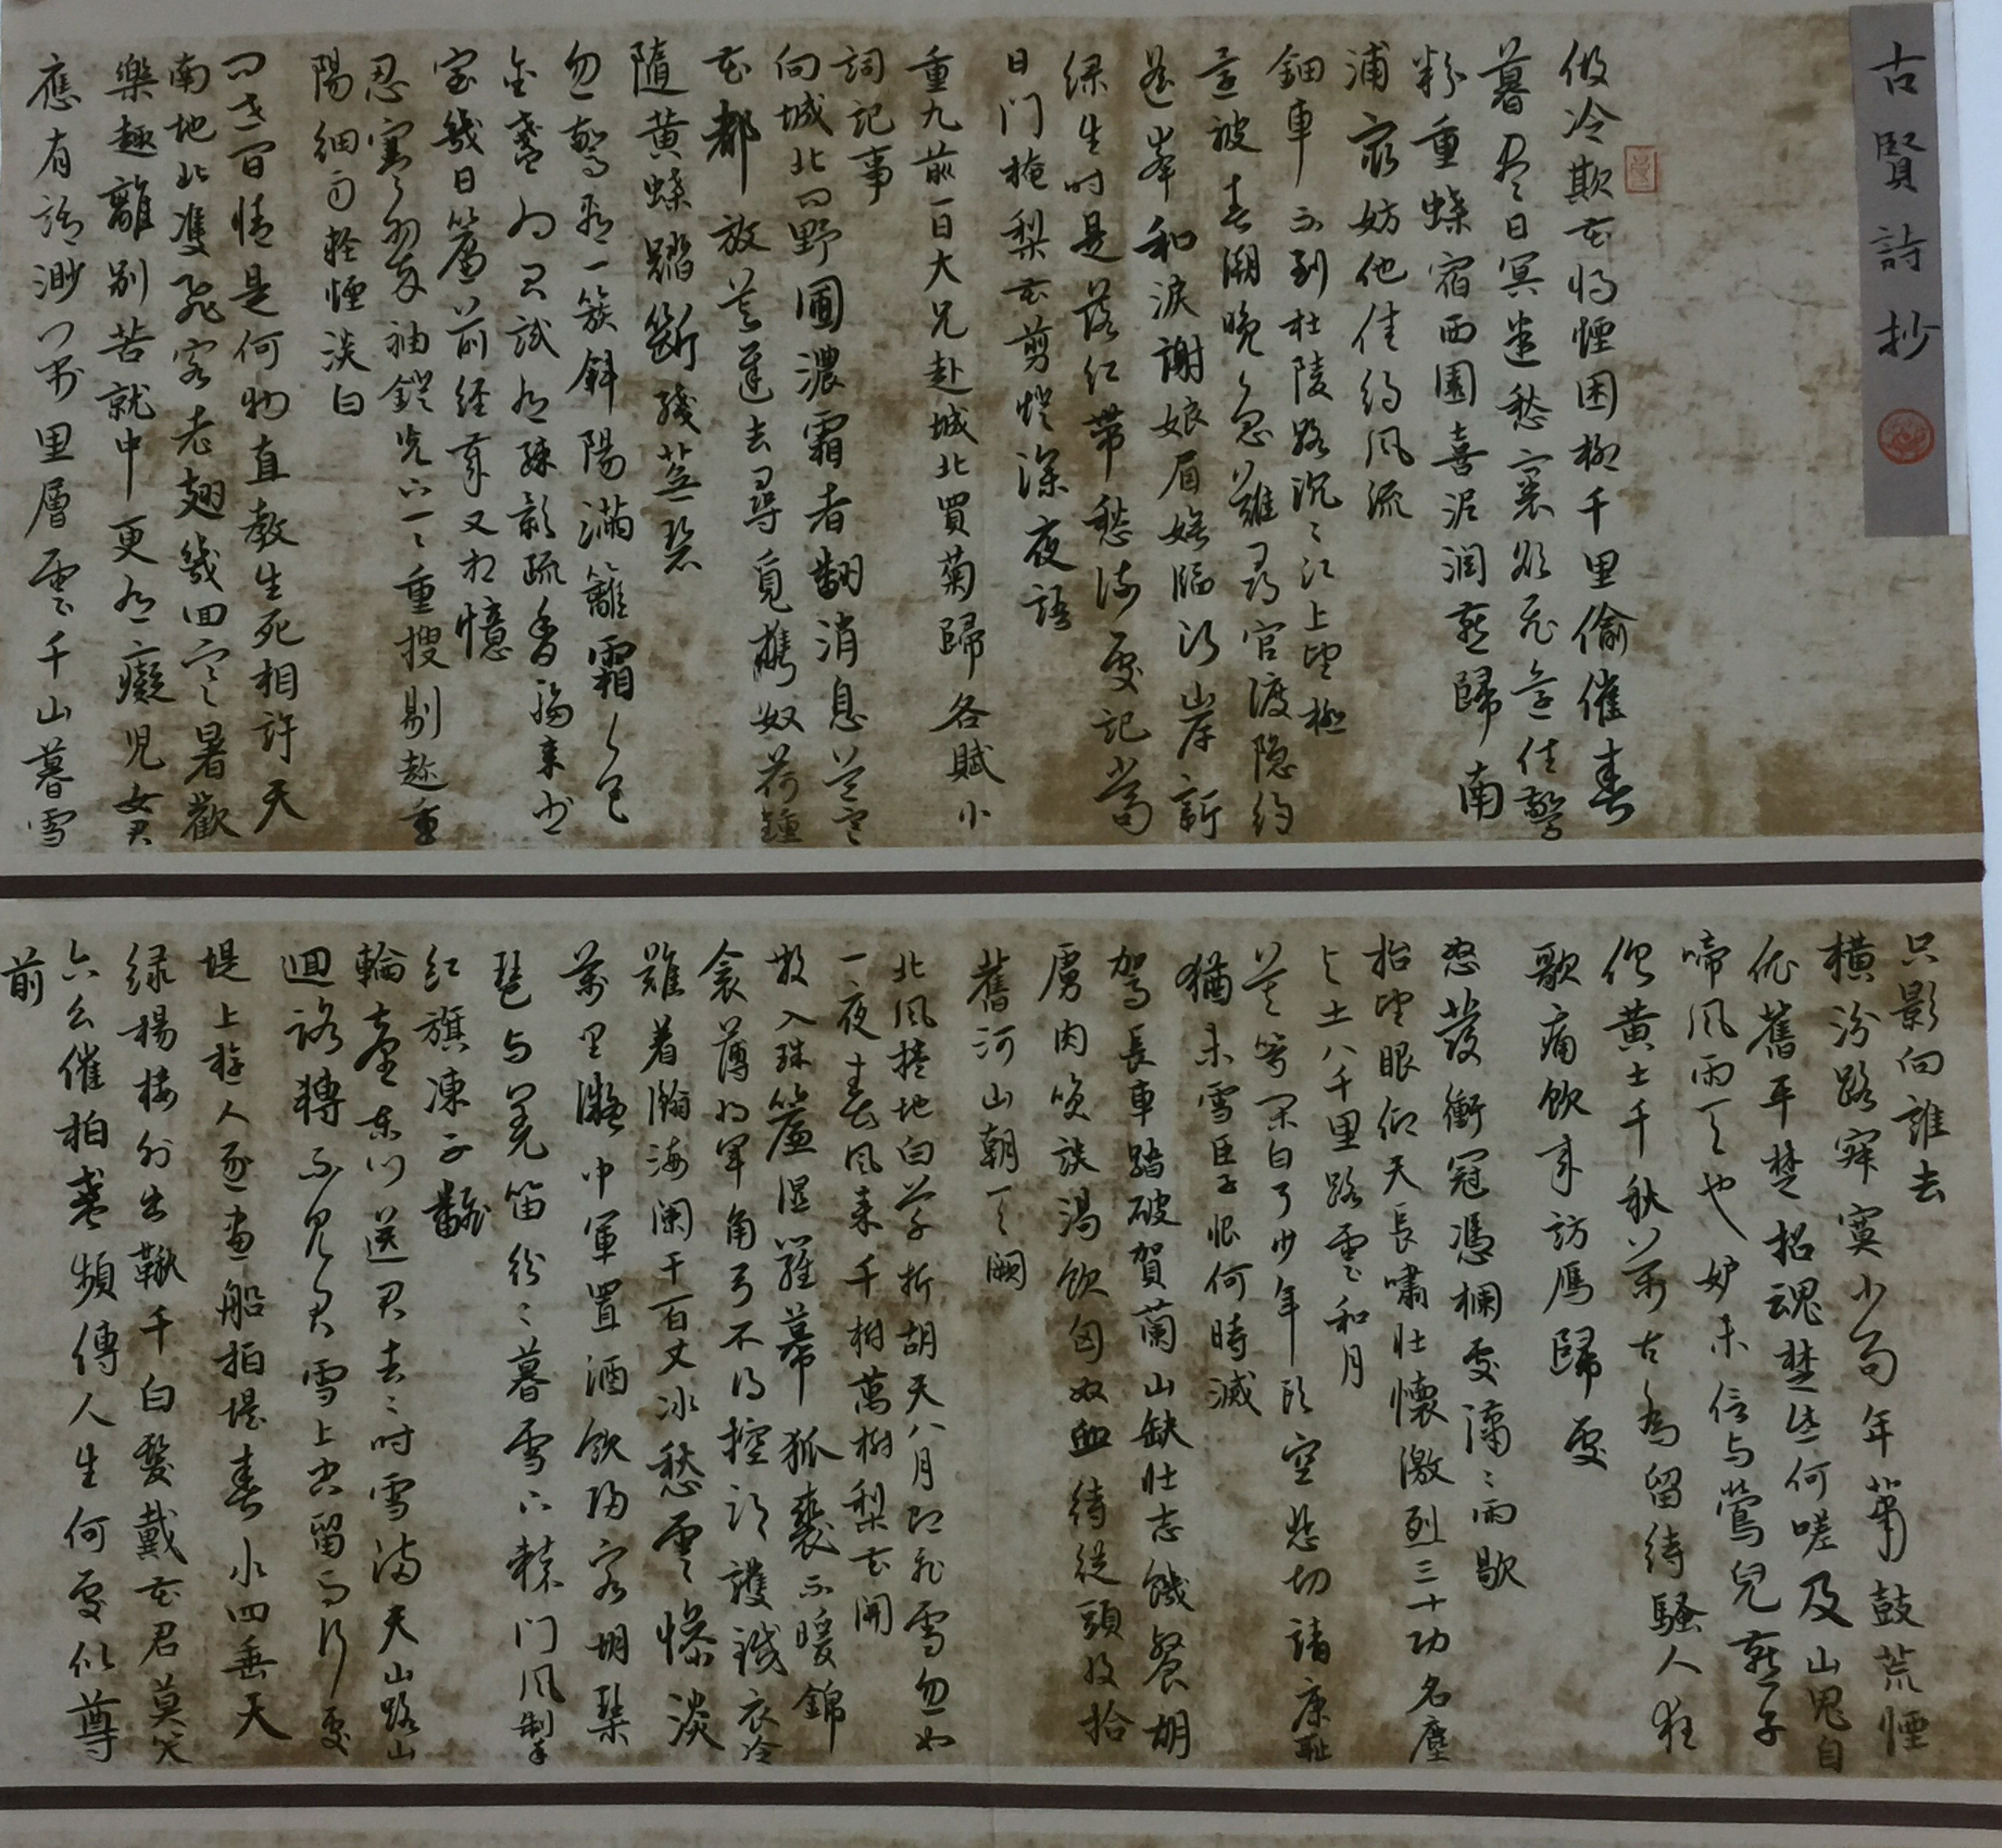 古賢詩抄
做冷欺花将煙困柳千里偷催春
暮尽日冥迷愁裏欲飛還住驚
粉重蝶宿西園喜泥润燕歸南
浦最妨他佳约风流
鈿車不到杜陵路沉〻江上望極
還被春潮晚急難尋官渡隐約
遥峯和淚謝娘眉嫵臨断岸新
绿生时是落红带愁流處記當
日门掩梨花剪燈深夜語
重九前一日大兄赴城北買菊歸各賦小
詞記事
向城北田野圃濃霜者翻消息
花都放 去尋覓携奴荷鍾
隨黄蝶踏斷殘芜碧
忽驚看一簇斜陽滿籬霜
为君試 疎影疏香移来
幾日簾前经 又相憶
忍寒 袖鐙光下一重搜剔趁重
陽细雨輕煙淡白
问世间情是何物直教生死相許天
南地北雙飛客老翅幾回寒暑歡
樂趣離别苦就中更有癡児女君
應有語渺万里層雲千山暮雪
只影向誰去
横汾路寂寞当年萧鼓荒煙
依舊平楚招魂楚些何嗟及山鬼自
啼风雨天也妒未信与鶯兒燕子
俱黄土千秋萬古為留待騷人狂
歌痛飲来訪雁歸處
怒髮衝冠憑欄處潇〻雨歇
抬望眼仰天長嘯壮懷激烈三十功名塵
与土八千里路雲和月
莫等闲白了少年头空悲切靖康耻
猶未雪臣子恨何時滅
駕長車踏破賀蘭山缺壮志饑餐胡
虜肉笑談渴飲匈奴血待從頭收拾
舊河山朝天闕
北风捲地白草折胡天八月即飛雪忽如
一夜春风来千樹萬樹梨花開
散入珠簾湿羅幕狐裘不暖錦
衾薄将军角弓不得控都護鐵衣冷
難着瀚海阑干百丈冰愁雲慘淡
萬里凝中軍置酒飲归客胡琴
琵琶与羌笛纷〻暮雪下轅门风掣
红旗凍不翻
輪臺东门送君去〻时雪满天山路山
迴路轉不见君雪上空留马行處
堤上遊人逐画船拍堤春水四垂天
绿楊楼外出鞦千白髮戴花君莫笑
六幺催拍盏頻傳人生何處似尊
前